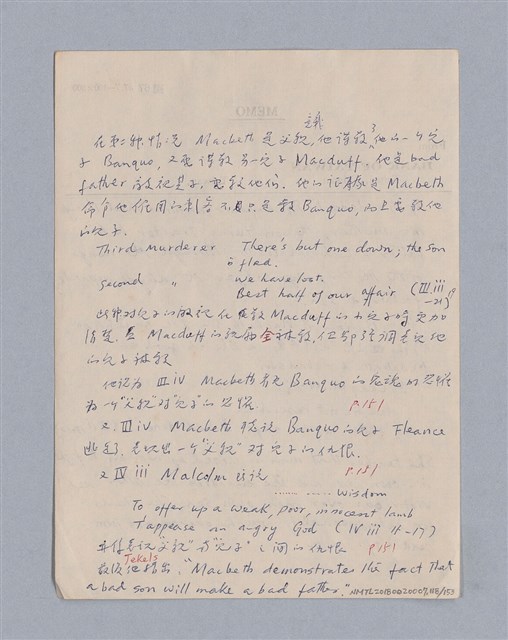 在第二種情況 Macbeth 是父親, 他謀殺了他的一個兒
子 Banquo, 又要謀殺另一兒子 Macduff. 他是bad
father 敵視其子, 要殺他們. 他的証據是 Macbeth
命令他僱用的刺客不只是殺 Banquo, 而且要殺他
的兒子.
Third Murderer There's but one down; the son
is fled.
Second " We have lost
Best half of our affair (III.iii
-21)
此種對兒子的敵視在殺 Macduff 的小兒子時更加
清楚. Macduff 的 全 被殺, 但却強調是他
的兒子被殺
他認為 III iv Macbeth 看見 Banquo 的鬼魂的恐懼
為一個"父親"對"兒子"的恐懼. P.151
又 III iv Macbeth 聽說 Banquo 的兒子 Fleance
逃了, 表現出一個"父親"對兒子的仇恨.
又 IV iii Malcolm 的話 P.151
....... ...... wisdom
To offer up a weak, poor, innocent lamb
T'appease an angry God (IV iii 15-17)
"父親"與"兒子"之間的仇恨 P.151
Tekels
最後他指出, "Macbeth demonstrates the fact that
a bad son will make a bad father."
MEMO